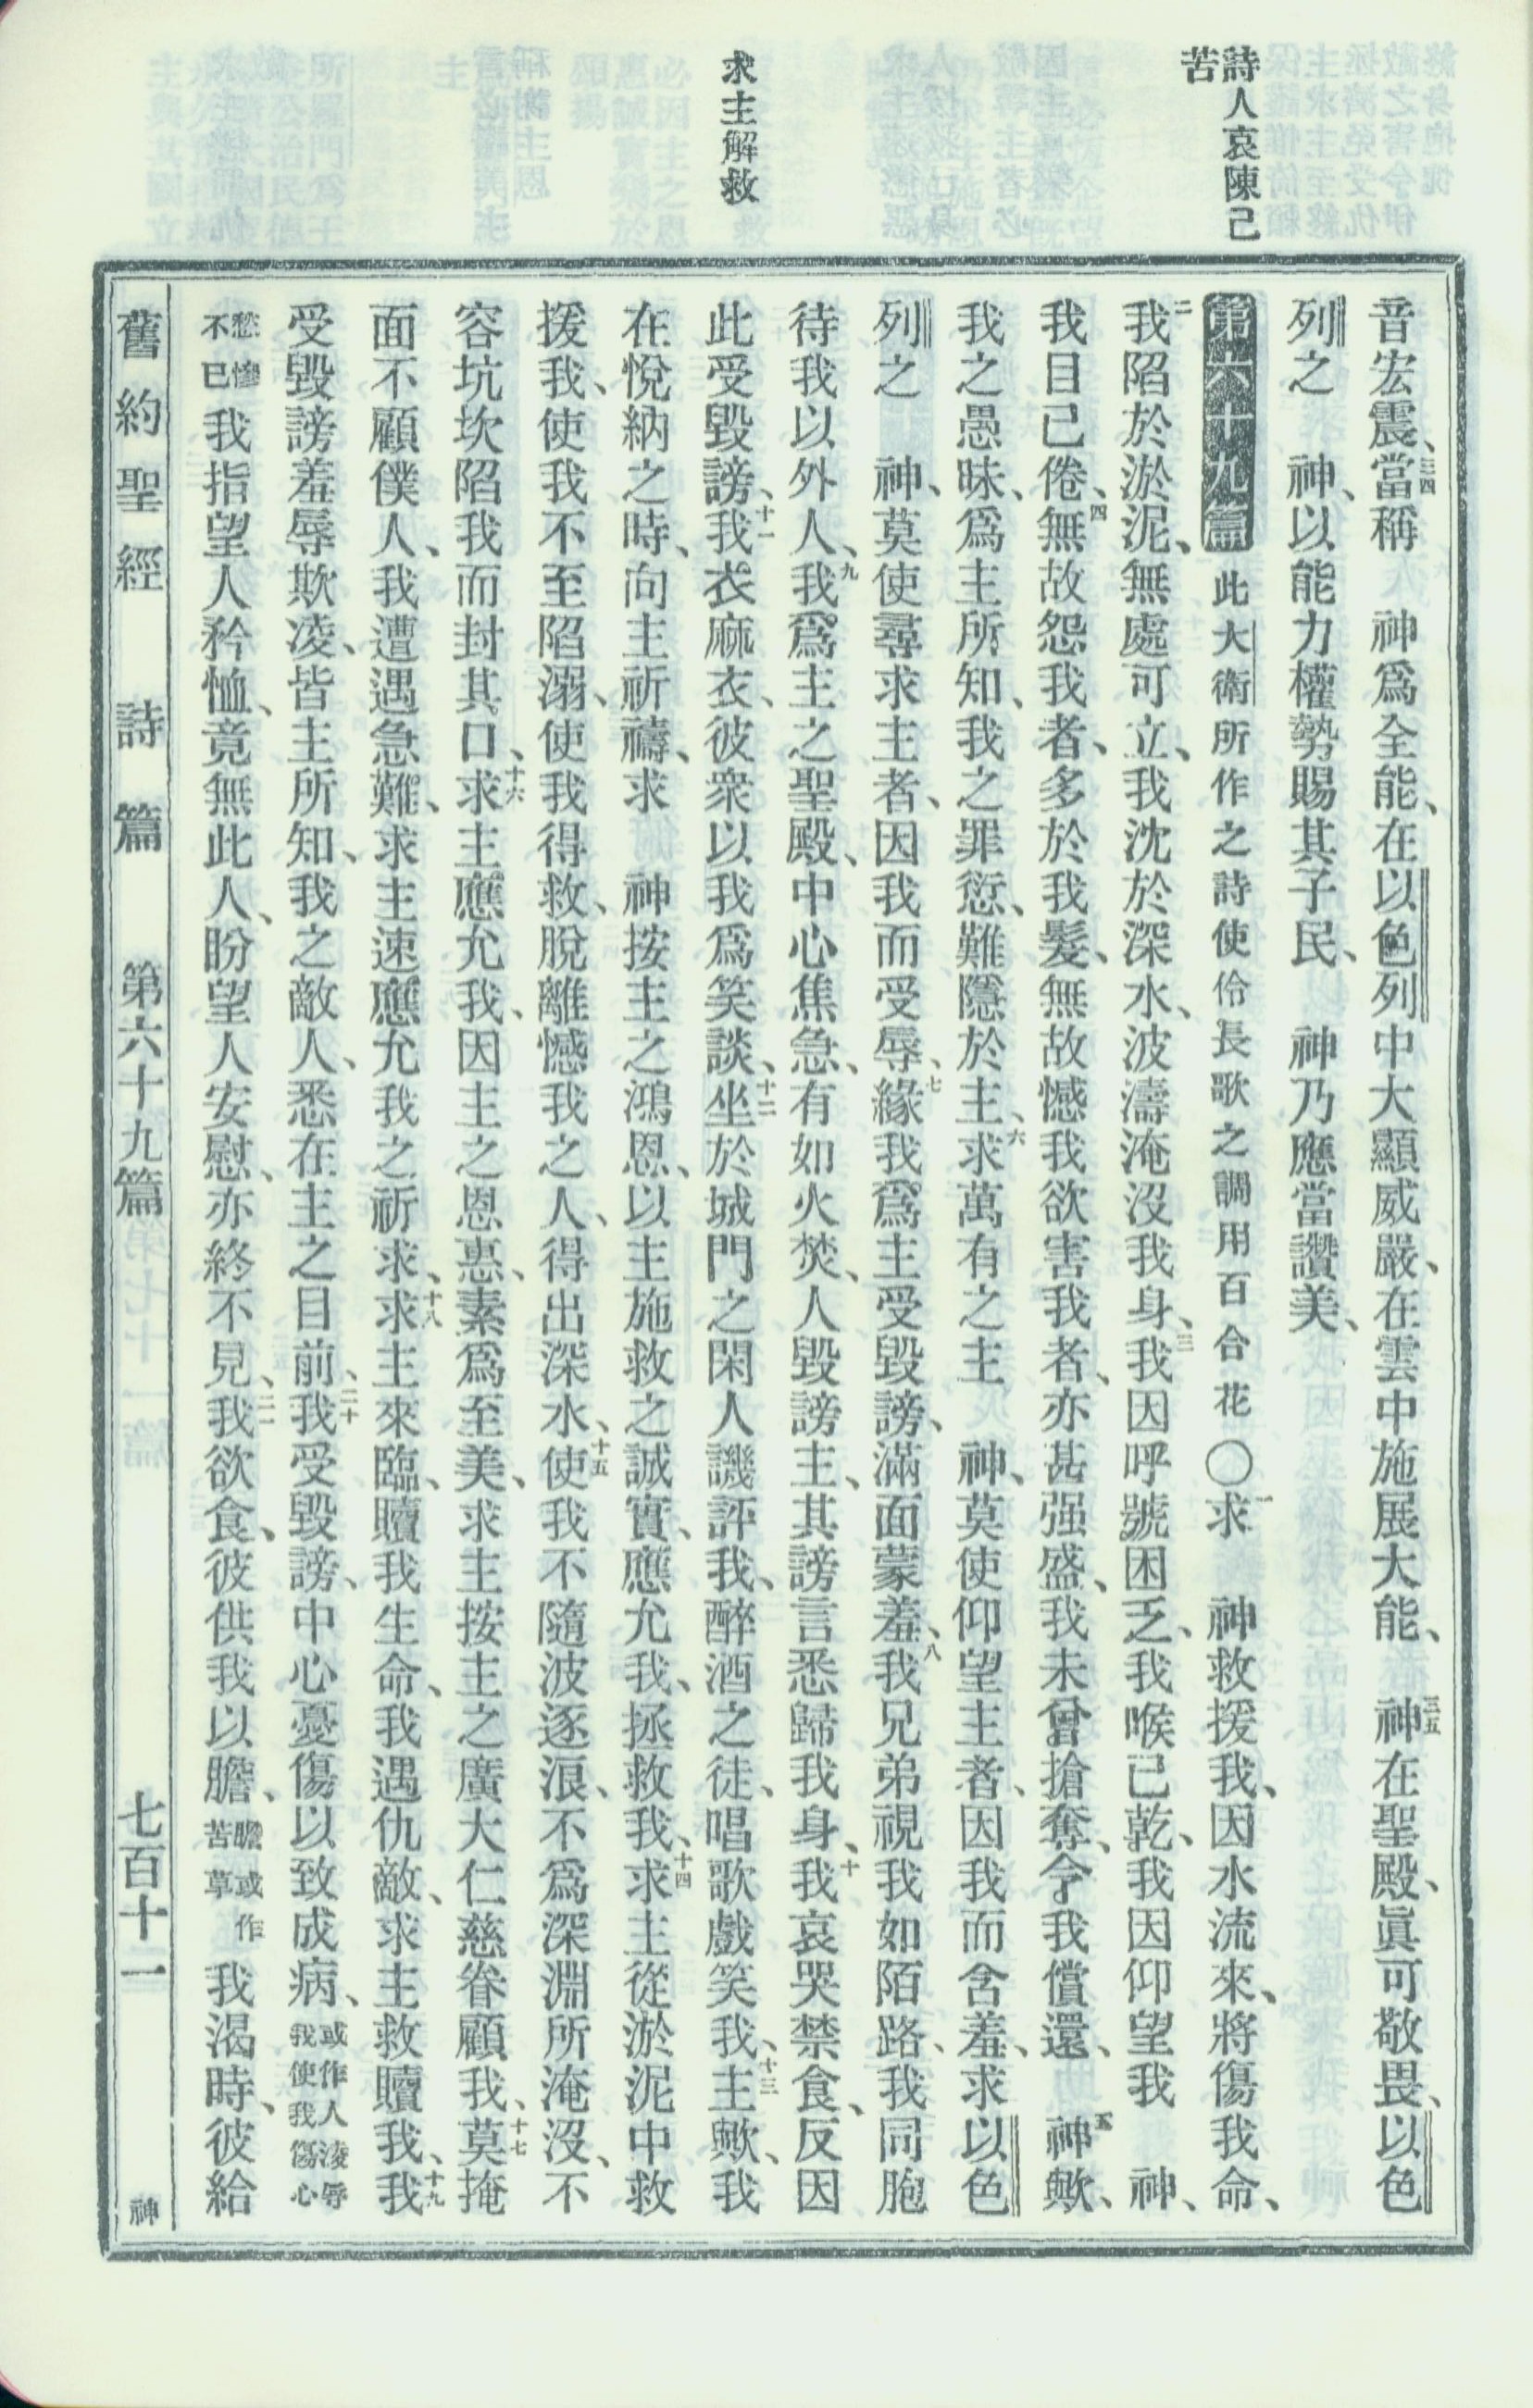 詩人哀陳己
苦
求主解救
音宏震、三四當稱　神爲全能、在以色列中大顯威嚴、在雲中施展大能、三五神在聖殿、眞可敬畏、以色
列之　神、以能力權勢賜其子民、　神乃應當讚美、
第六十九篇　此大衛所作之詩使伶長歌之調用百合花　〇一求　神救援我、因水流來、將傷我命、
二我陷於淤泥、無處可立、我沈於深水、波濤淹沒我身、三我因呼號困乏、我喉已乾、我因仰望我　神、
我目已倦、四無故怨我者、多於我髮、無故憾我欲害我者、亦甚强盛、我未曾搶奪、令我償還、五神歟、
我之愚昧、爲主所知、我之罪愆、難隱於主、六求萬有之主　神、莫使仰望主者、因我而含羞、求以色
列之　神、莫使尋求主者、因我而受辱、七緣我爲主受毀謗、滿面蒙羞、八我兄弟視我如陌路、我同胞
待我以外人、九我爲主之聖殿、中心焦急、有如火焚、人毀謗主、其謗言悉歸我身、十我哀哭禁食、反因
此受毀謗、十一我衣麻衣、彼衆以我爲笑談、十二坐於城門之閑人譏評我、醉酒之徒、唱歌戲笑我、十三主歟、我
在悅納之時、向主祈禱、求　神按主之鴻恩、以主施救之誠實、應允我、拯救我、十四求主從淤泥中救
援我、使我不至陷溺、使我得救、脫離憾我之人、得出深水、十五使我不隨波逐浪、不爲深淵所淹沒、不
容坑坎陷我而封其口、十六求主應允我、因主之恩惠、素爲至美、求主按主之廣大仁慈眷顧我、十七莫掩
面不顧僕人、我遭遇急難、求主速應允我之祈求、十八求主來臨、贖我生命、我遇仇敵、求主救贖我、十九我
受毀謗羞辱欺凌、皆主所知、我之敵人、悉在主之目前、二十我受毀謗、中心憂傷以致成病、或作人淩辱我使我傷心
愁慘不已我指望人矜恤、竟無此人、盼望人安慰、亦終不見、二一我欲食、彼供我以膽、膽或作苦草我渴時、彼給
舊約聖經　詩篇　第六十九篇　七百十一　神